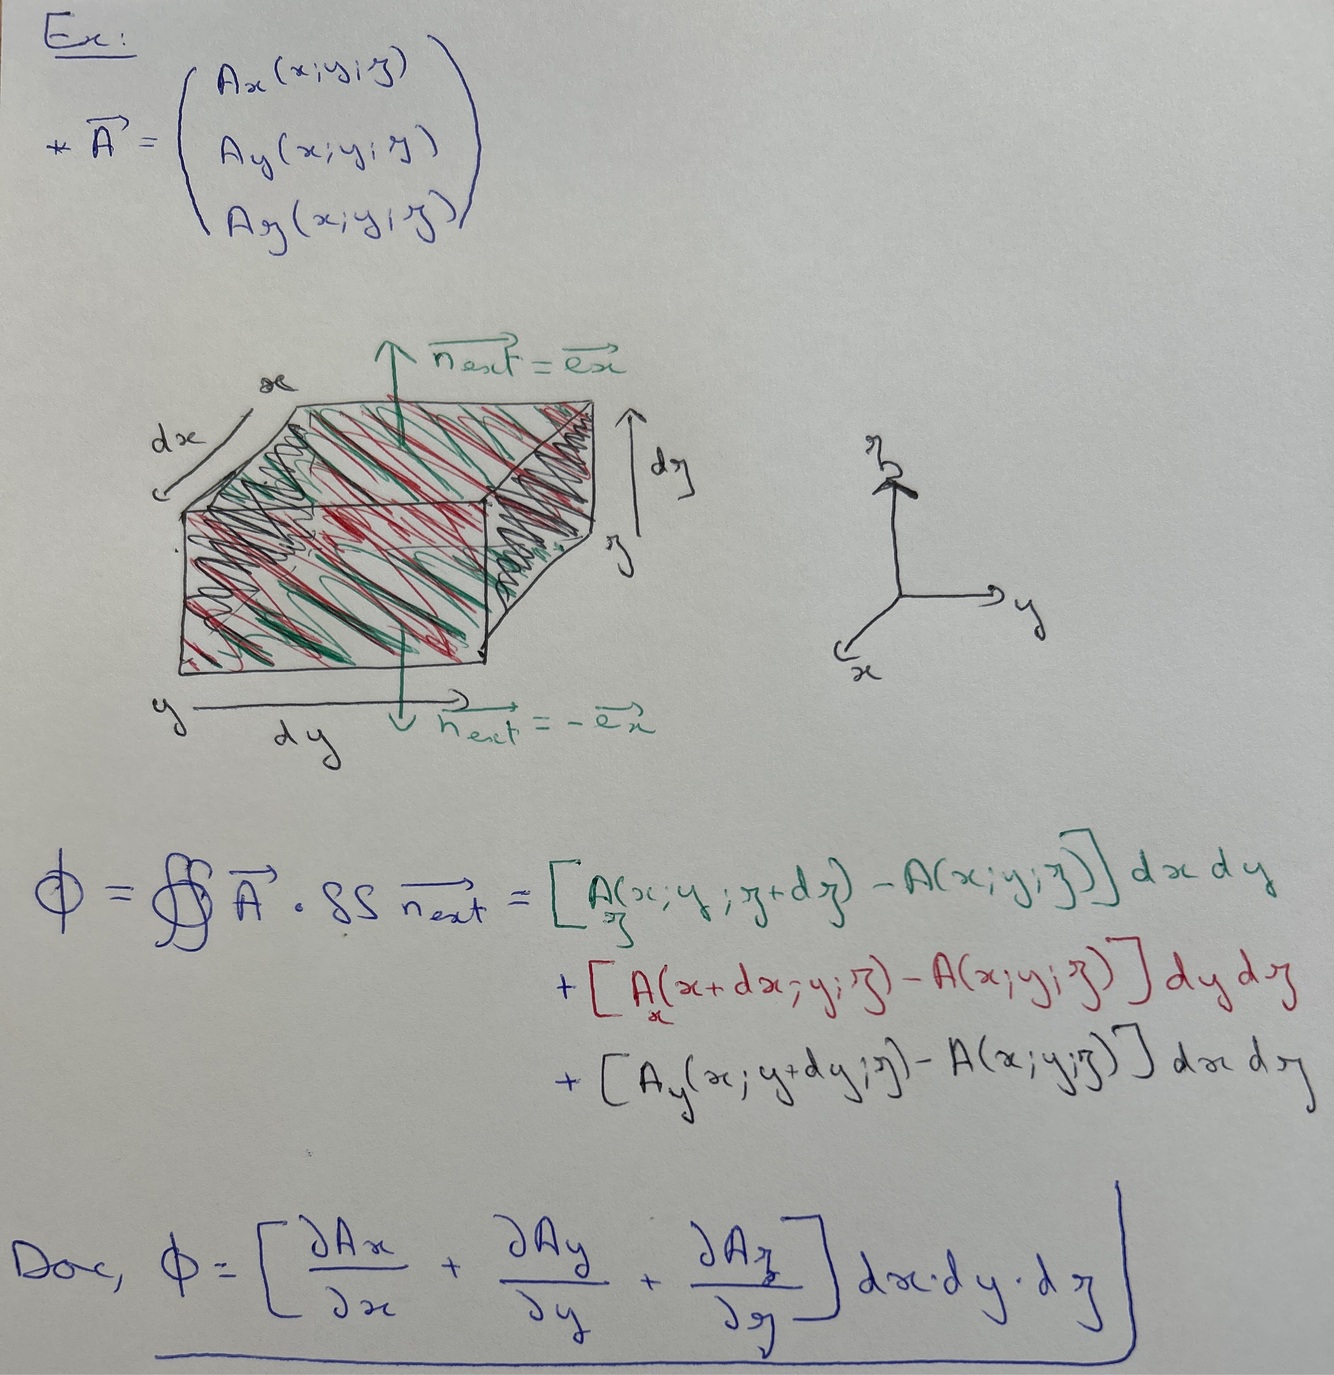 Ex:
* A⃗ = ( Ax(x;y;z)
Ay(x;y;z)
Az(x;y;z) )
n⃗ext = e⃗x
x
dx
dz
z
z
y
x
y
dy
n⃗ext = - e⃗x
ϕ = ∯ A⃗ . δS n⃗ext = [Az(x;y;z+dz) - A(x;y;z)] dx dy
+ [Ax(x+dx;y;z) - A(x;y;z)] dy dz
+ [Ay(x;y+dy;z) - A(x;y;z)] dx dz
Donc, ϕ = [∂Ax/∂x + ∂Ay/∂y + ∂Az/∂z] dx.dy.dz